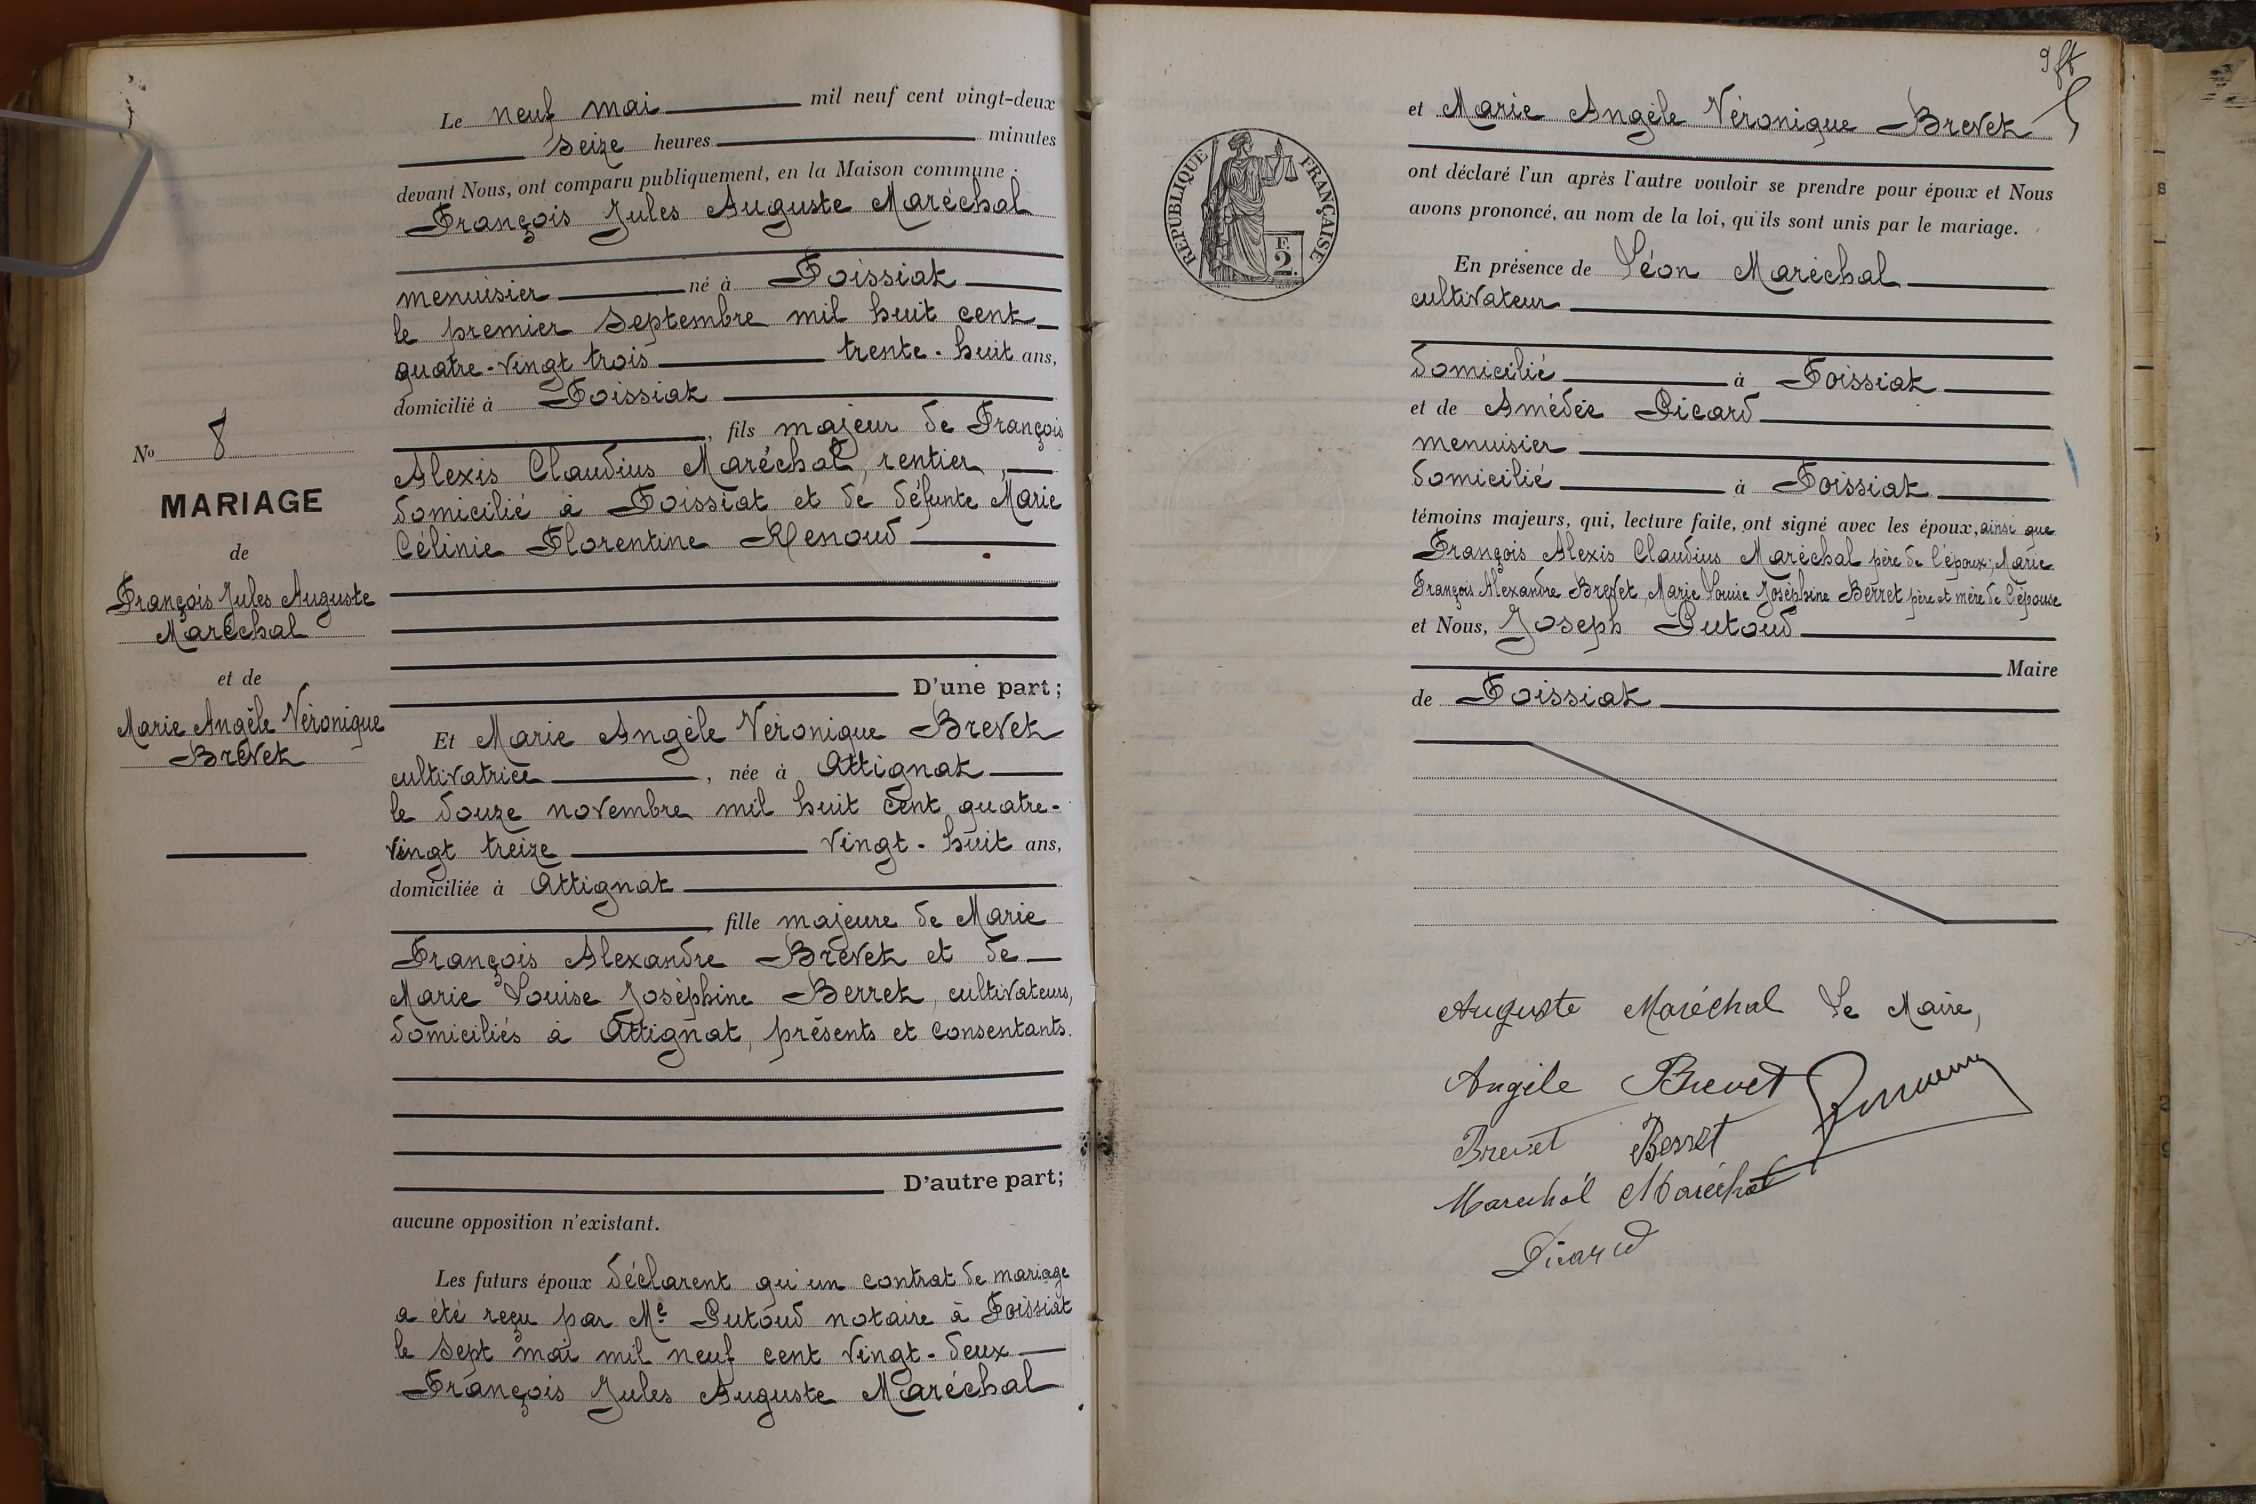 Le neuf mai mil neuf cent vingt-deux
seize heures minutes
devant Nous, ont comparu publiquement, en la Maison commune :
François Jules Auguste Maréchal
menuisier né à Foissiat
le premier Septembre mil huit cent
quatre-vingt trois trente-huit ans,
domicilié à Foissiat
, fils majeur de François
Alexis Claudius Maréchal, rentier,
domicilié à Foissiat et de défunte Marie
Célinie Florentine Renoud
D'une part;
Et Marie Angèle Véronique Brevet
cultivatrice, née à Attignat
le douze novembre mil huit cent quatre-
vingt treize vingt-huit ans,
domiciliée à Attignat
fille majeure de Marie
François Alexandre Brevet et de
Marie Louise Joséphine Berret, cultivateurs,
domiciliés à Attignat, présents et consentants.
D'autre part;
aucune opposition n'existant.
Les futurs époux déclarent qu'un contrat de mariage
a été reçu par Me Putoud notaire à Foissiat
le sept mai mil neuf cent vingt-deux
François Jules Auguste Maréchal
No 8
MARIAGE
de
François Jules Auguste
Maréchal
et de
Marie Angèle Véronique
Brevet
9
et Marie Angèle Véronique Brevet
RÉPUBLIQUE FRANÇAISE
F.
2.
ont déclaré l'un après l'autre vouloir se prendre pour époux et Nous
avons prononcé, au nom de la loi, qu'ils sont unis par le mariage.
En présence de Léon Maréchal
cultivateur
domicilié à Foissiat
et de Amédée Picard
menuisier
domicilié à Foissiat
témoins majeurs, qui, lecture faite, ont signé avec les époux, ainsi que
François Alexis Claudius Maréchal père de l'époux; Marie
François Alexandre Brevet, Marie Louise Joséphine Berret père et mère de l'épouse
et Nous, Joseph Putoud
Maire
de Foissiat
Auguste Maréchal Le Maire,
Angèle Brevet
Brevet Berret
Marechal Maréchal
Picard